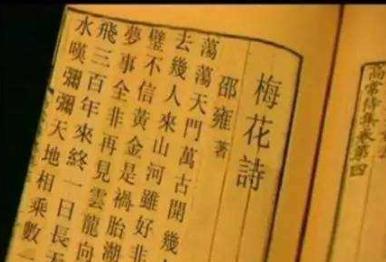 梅花詩
邵雍著
蕩蕩天門萬古開幾
去幾人來山河雖好非
璧不信黃金是禍胎湖
夢事全非再見雲龍向
飛三百年來終一日長天
水嘆彌彌天地相乘數一
高常侍集卷第四